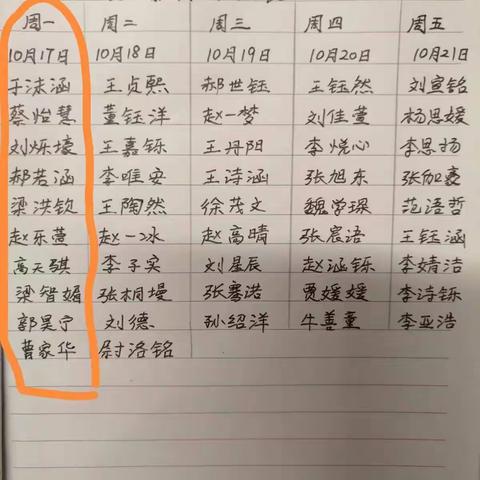 周一 周二 周三 周四 周五
10月17日 10月18日 10月19日 10月20日 10月21日
于沫涵 王贞熙 郝世钰 王钰然 刘宣铭
蔡怡慧 董钰洋 赵一梦 刘佳萱 杨恩媛
刘烁壕 王嘉铄 王丹阳 李悦心 李恩扬
郝若涵 李唯安 王诗涵 张旭东 张伽豪
梁洪钦 王陶然 徐茂文 魏学琛 范语哲
赵乐萱 赵一冰 赵高晴 张宸语 王钰涵
高天骐 李子实 刘星辰 赵涵铄 李婧洁
梁智娟 张桐墁 张骞诺 贾媛媛 李诗铄
郭昊宁 刘德 孙绍洋 牛善童 李亚浩
曹家华 尉洛铭